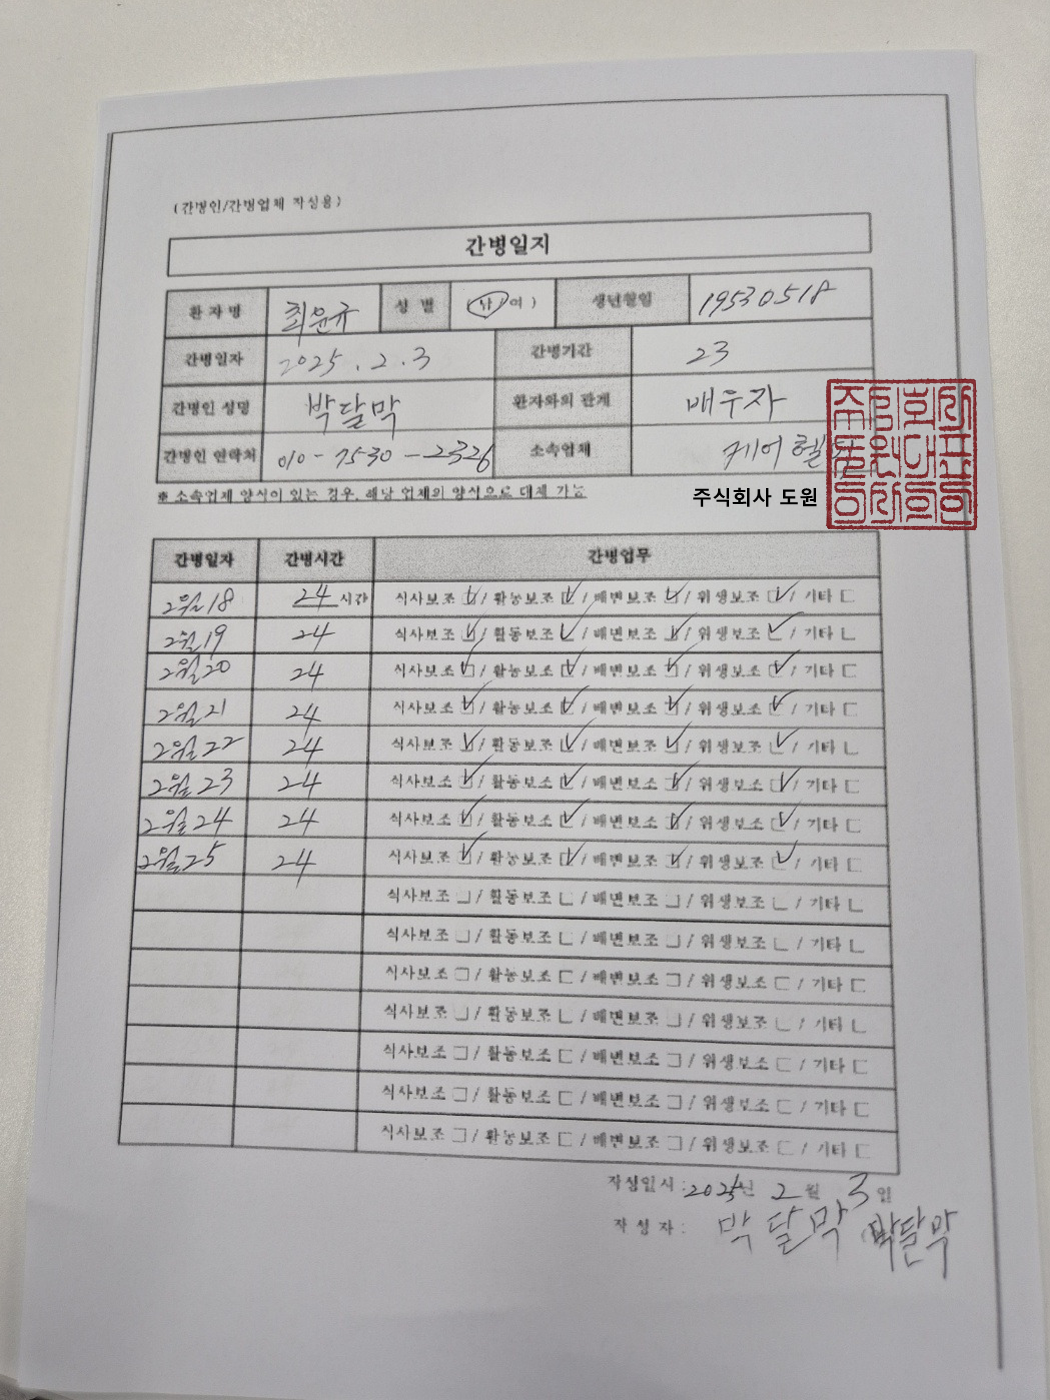 (간병인/간병업체 작성용)
간병일지
환자명 최윤규 성 별 (남/여) 생년월일 19530518
간병일자 2025.2.3 간병기간 23
간병인 성명 박달막 환자와의 관계 배우자
간병인 연락처 010-7530-2326 소속업체 케어헬
※ 소속업체 양식이 있는 경우, 해당 업체의 양식으로 대체 가능
주식회사 도원
간병일자 간병시간 간병업무
2월18 24시간 식사보조 ☑ / 활동보조 ☑ / 배변보조 ☑ / 위생보조 ☑ / 기타 □
2월19 24 식사보조 ☑ / 활동보조 ☑ / 배변보조 ☑ / 위생보조 ☑ / 기타 □
2월20 24 식사보조 ☑ / 활동보조 ☑ / 배변보조 ☑ / 위생보조 ☑ / 기타 □
2월21 24 식사보조 ☑ / 활동보조 ☑ / 배변보조 ☑ / 위생보조 ☑ / 기타 □
2월22 24 식사보조 ☑ / 활동보조 ☑ / 배변보조 ☑ / 위생보조 ☑ / 기타 □
2월23 24 식사보조 ☑ / 활동보조 ☑ / 배변보조 ☑ / 위생보조 ☑ / 기타 □
2월24 24 식사보조 ☑ / 활동보조 ☑ / 배변보조 ☑ / 위생보조 ☑ / 기타 □
2월25 24 식사보조 ☑ / 활동보조 ☑ / 배변보조 ☑ / 위생보조 ☑ / 기타 □
식사보조 □ / 활동보조 □ / 배변보조 □ / 위생보조 □ / 기타 □
식사보조 □ / 활동보조 □ / 배변보조 □ / 위생보조 □ / 기타 □
식사보조 □ / 활동보조 □ / 배변보조 □ / 위생보조 □ / 기타 □
식사보조 □ / 활동보조 □ / 배변보조 □ / 위생보조 □ / 기타 □
식사보조 □ / 활동보조 □ / 배변보조 □ / 위생보조 □ / 기타 □
식사보조 □ / 활동보조 □ / 배변보조 □ / 위생보조 □ / 기타 □
식사보조 □ / 활동보조 □ / 배변보조 □ / 위생보조 □ / 기타 □
작성일시 : 2025년 2월 3일
작 성 자 : 박달막 박달막